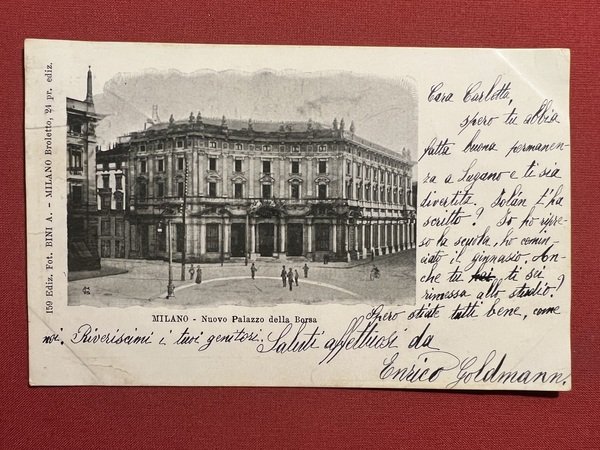 159 Ediz. Fot. BINI A. - MILANO Broletto, 24 pr. ediz.
MILANO - Nuovo Palazzo della Borsa
Cara Carlotta,
spero tu abbia
fatta buona permanen-
za a Lugano e ti sia
divertita. Zolán t'ha
scritto? Io ho ripre-
so la scuola, ho comin-
ciato il ginnasio. An-
che tu ti sei
rimessa allo studio?
Spero stiate tutti bene, come
noi. Riveriscimi i tuoi genitori. Saluti affettuosi da
Enrico Goldmann.